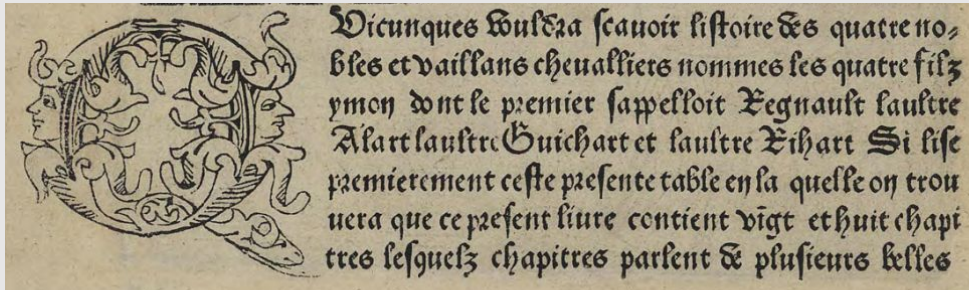 QVicunques vouldra scauoir listoire des quatre no-
bles et vaillans cheualliers nommes les quatre filz
ymon dont le premier sappelloit Regnault laultre
Alart laultre Guichart et laultre Rihart Si lise
premierement ceste presente table en la quelle on trou
uera que ce present liure contient vīgt et huit chapi
tres lesquelz chapitres parlent de plusieurs belles